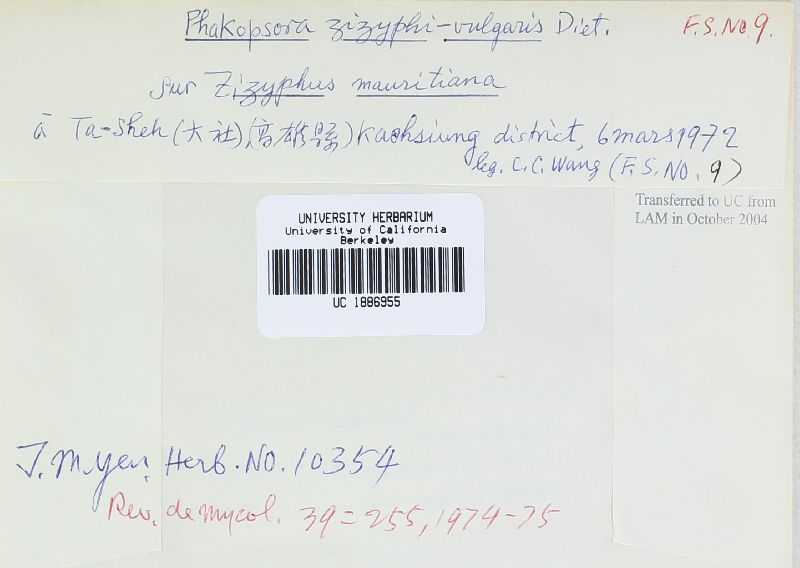 Phakopsora zizyphi-vulgaris Diet. F.S.No.9.
sur Zizyphus mauritiana
à Ta-Sheh (大社), (高雄縣) Kaohsiung district, 6 mars 1972
leg. C.C. Wang (F.S. No. 9)
Transferred to UC from
LAM in October 2004
UNIVERSITY HERBARIUM
University of California
Berkeley
UC 1886955
J. M. Yen. Herb. No. 10354
Rev. de mycol. 39=255, 1974-75